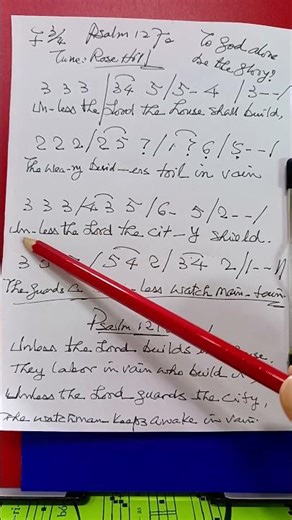 F 3/4 Psalm 127a To God alone
Tune: Rose Hill be the glory!
3 3 3 / 34 5 / 5 - 4 / 3 - - /
Un-less the Lord the house shall build,
2 2 2 / 25 7 / 176 / 5 - - /
The wea-ry build-ers toil in vain
3 3 3 / 43 5 / 6 - 5 / 2 - - /
Un-less the Lord the cit-y shield.
3 / 54 2 / 34 2 / 1 - - //
The guards less watch main-tain.
Psalm 127:1
Unless the Lord builds
They labor in vain who build
Unless the Lord guards the city,
The watchman keeps awake in vain.